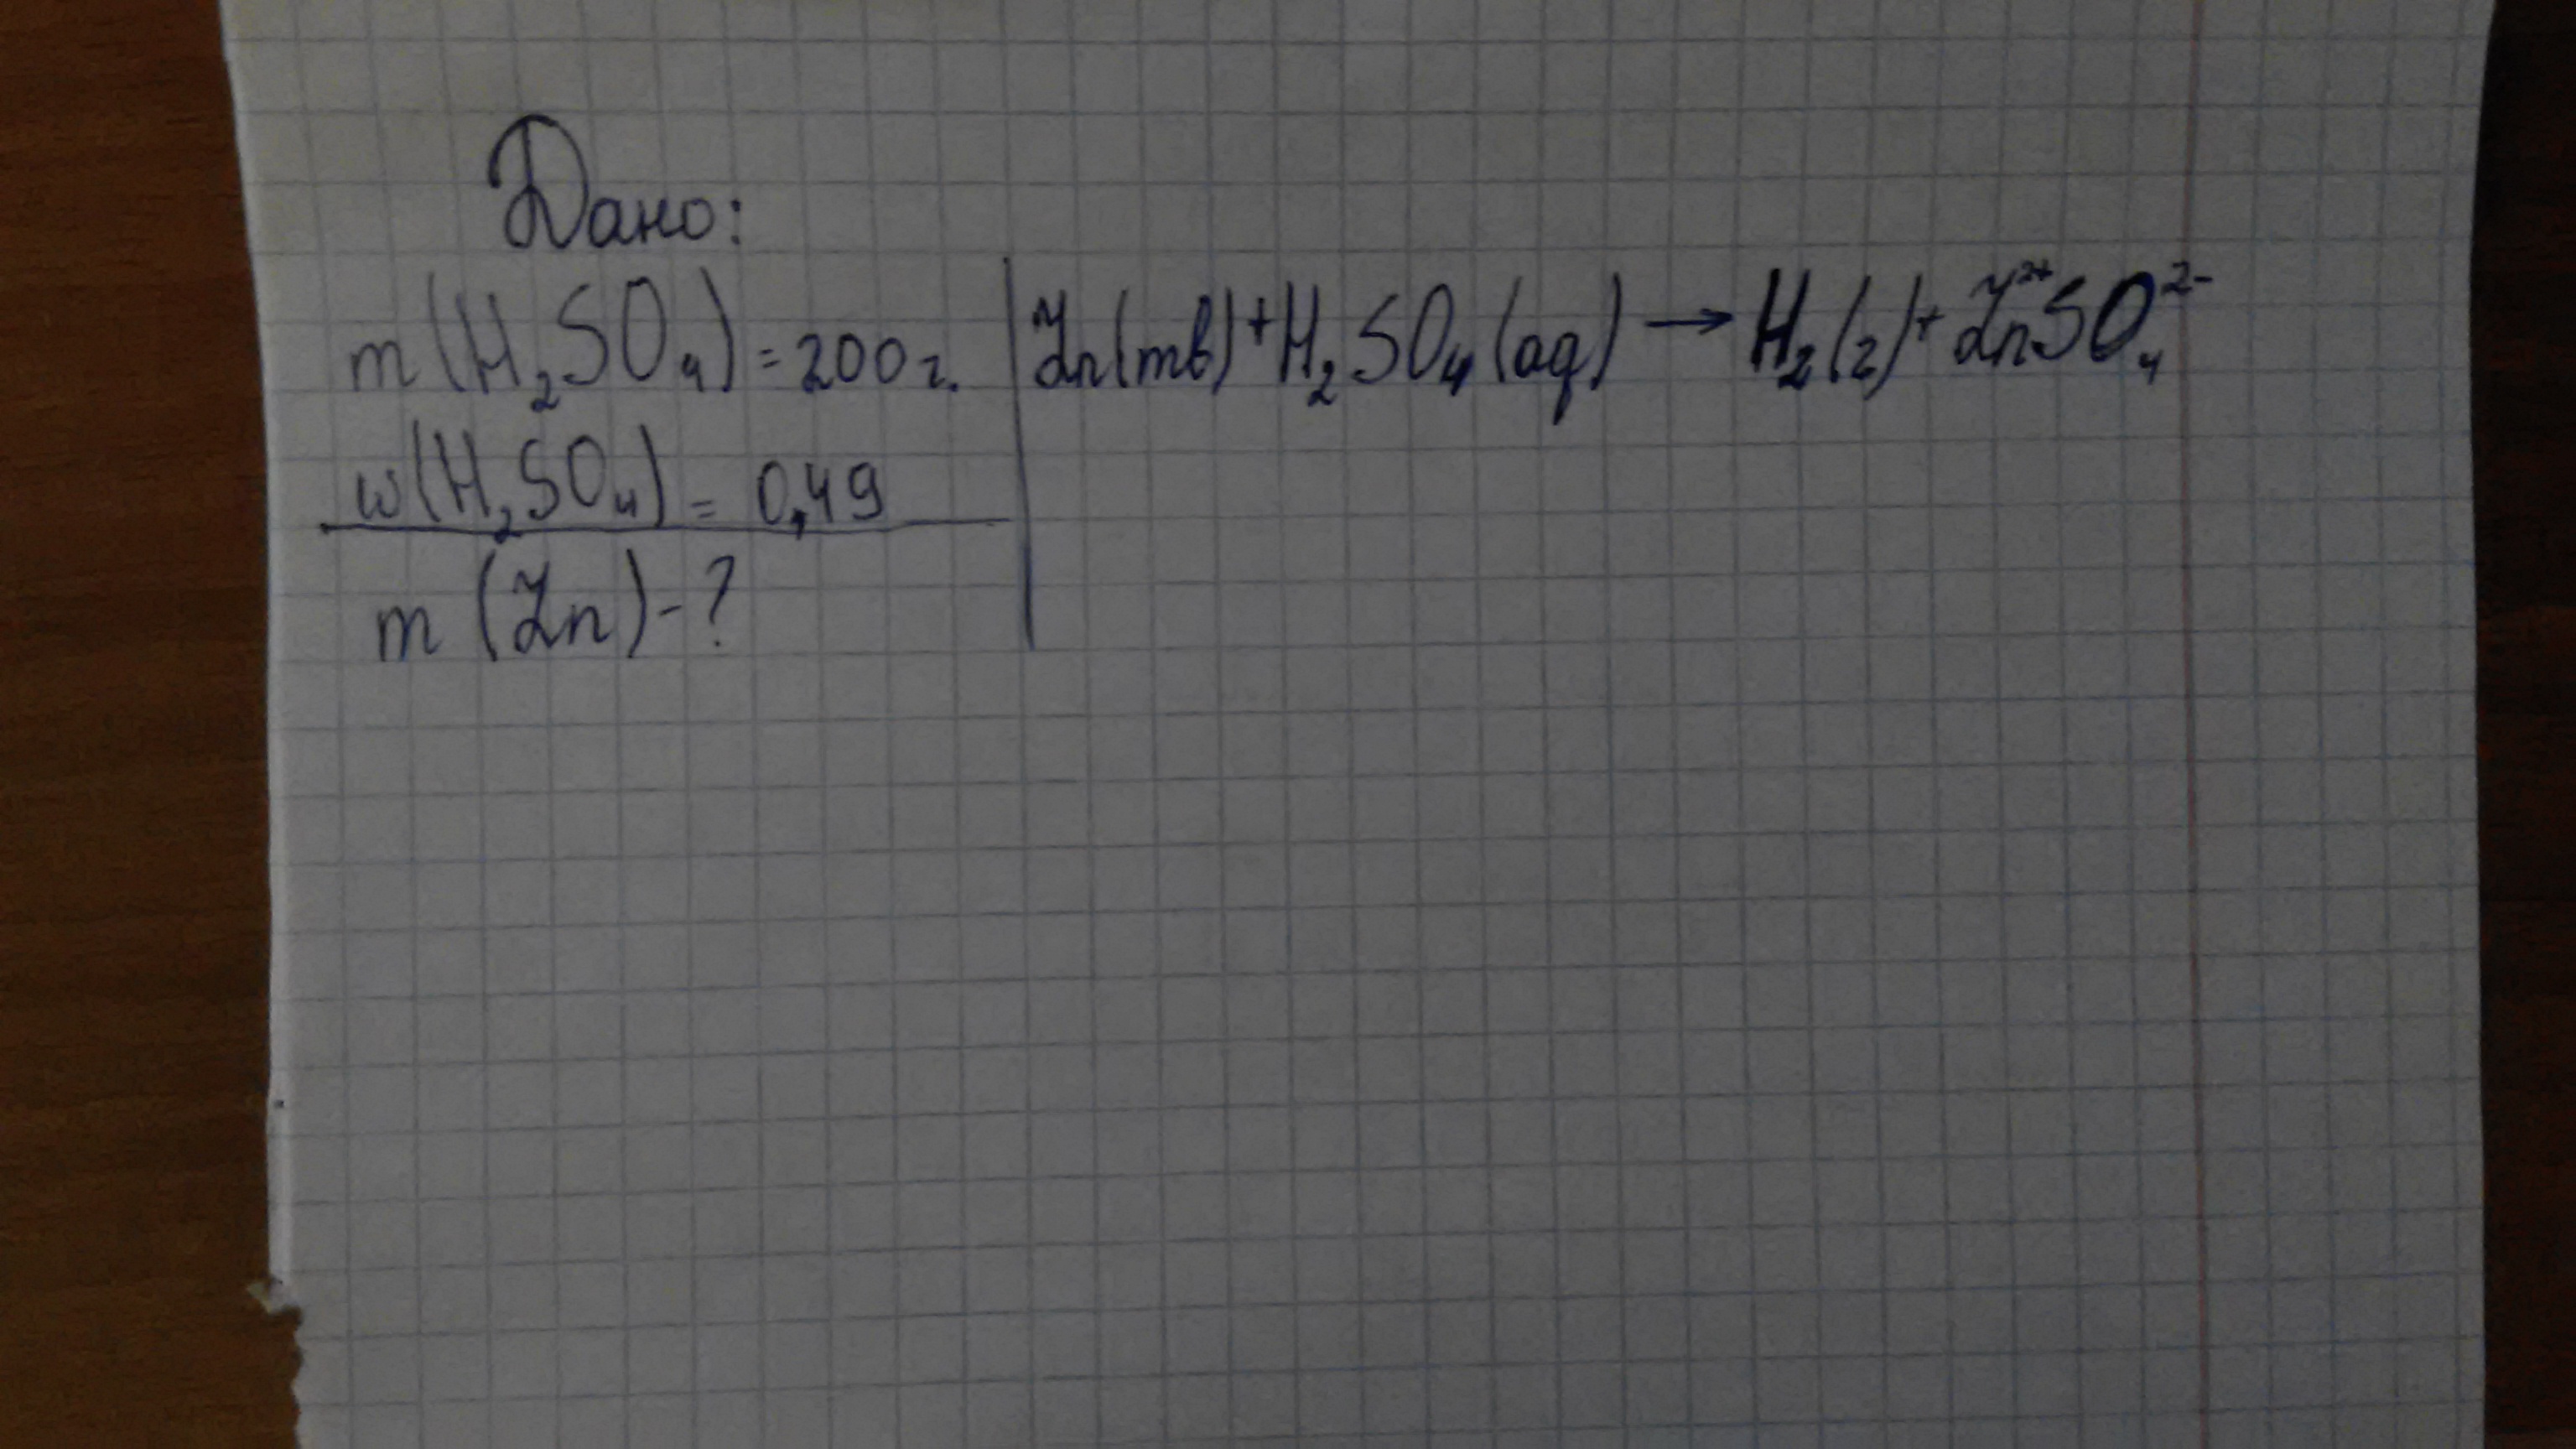 Дано:
m(H₂SO₄) = 200 г.
w(H₂SO₄) = 0,49
m(Zn) - ?
Zn(тв) + H₂SO₄(aq) → H₂(г) + Zn²⁺SO₄²⁻